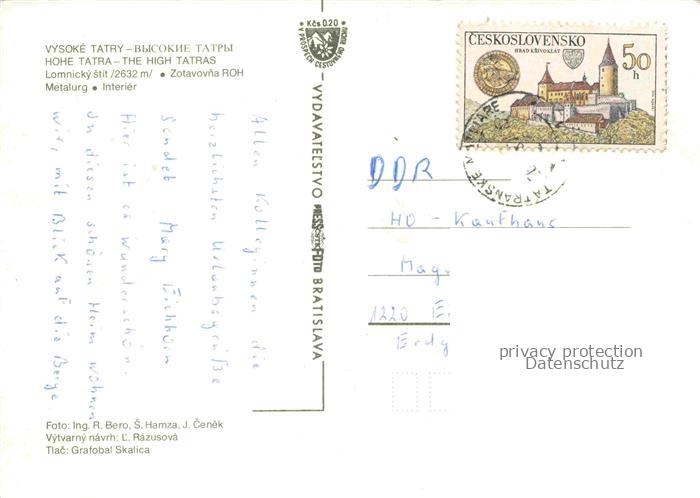 VYSOKÉ TATRY – ВЫСОКИЕ ТАТРЫ
HOHE TATRA – THE HIGH TATRAS
Lomnický štít /2632 m/ • Zotavovňa ROH
Metalurg • Interiér
Allen Kolleginnen die
herzlichsten Urlaubsgrüße
sendet Mary Eichhorn
Hier ist es wunderschön.
In diesen schönen Heim wohnen
wir, mit Blick auf die Berge.
Foto: Ing. R. Bero, Š. Hamza, J. Čeněk
Výtvarný návrh: Ľ. Rázusová
Tlač: Grafobal Skalica
Kčs 0.20
V PROSPECH CESTOVNÉHO RUCHU
VYDAVATEĽSTVO PRESSFOTO BRATISLAVA
ČESKOSLOVENSKO
HRAD KŘIVOKLÁT
50 h
TATRANSKÉ MATLIARE
DDR
HO - Kaufhaus
Mag
1220 Ei
Erdy
privacy protection
Datenschutz